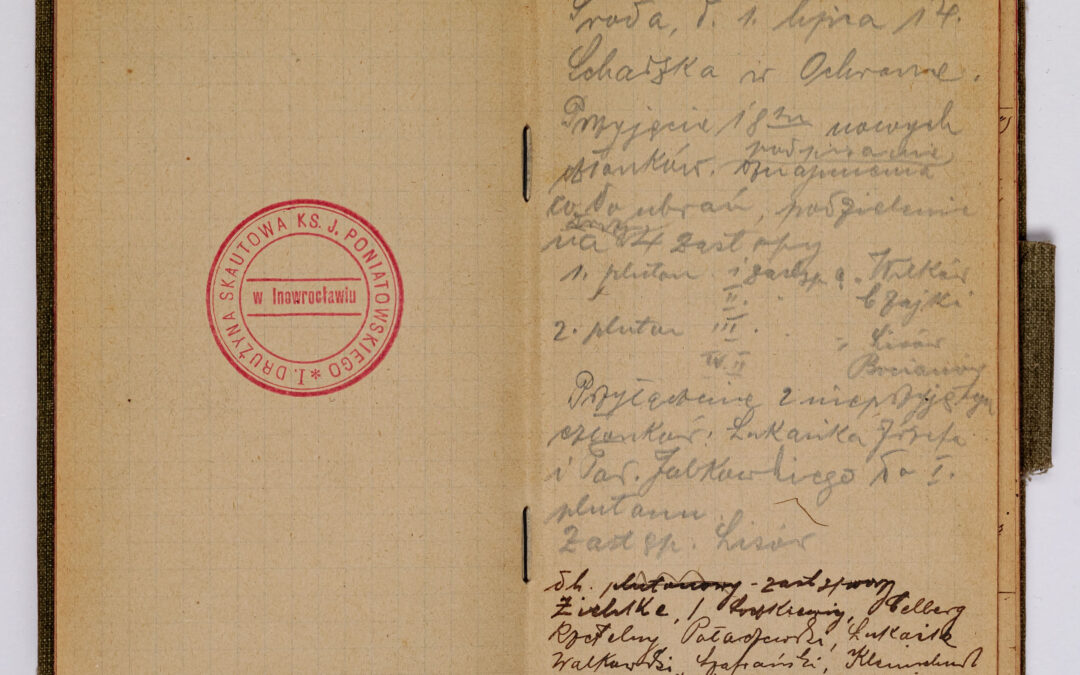 I. DRUŻYNA SKAUTOWA KS. J. PONIATOWSKIEGO *
w Inowrocławiu
Środa, d. 1. lipca 14.
w Ochronie.
Przyjęcie 18tu nowych
członków. podpisanie
do ubrań, podzielenie
na 4 zastępy
1. pluton I zastęp Wilków
II. " Czajki
2. pluton III. " Lisów
IV. Bociany
Przyłączenie 2 nieprzyjętych
członków: Łukasika Józefa
i Tad. Jabkowskiego do I.
plutonu.
Zastęp. Lisów
dh. plutonowy - zastępowy
Zielske, Helberg
Łukasik
Walkowski, Szafrański,